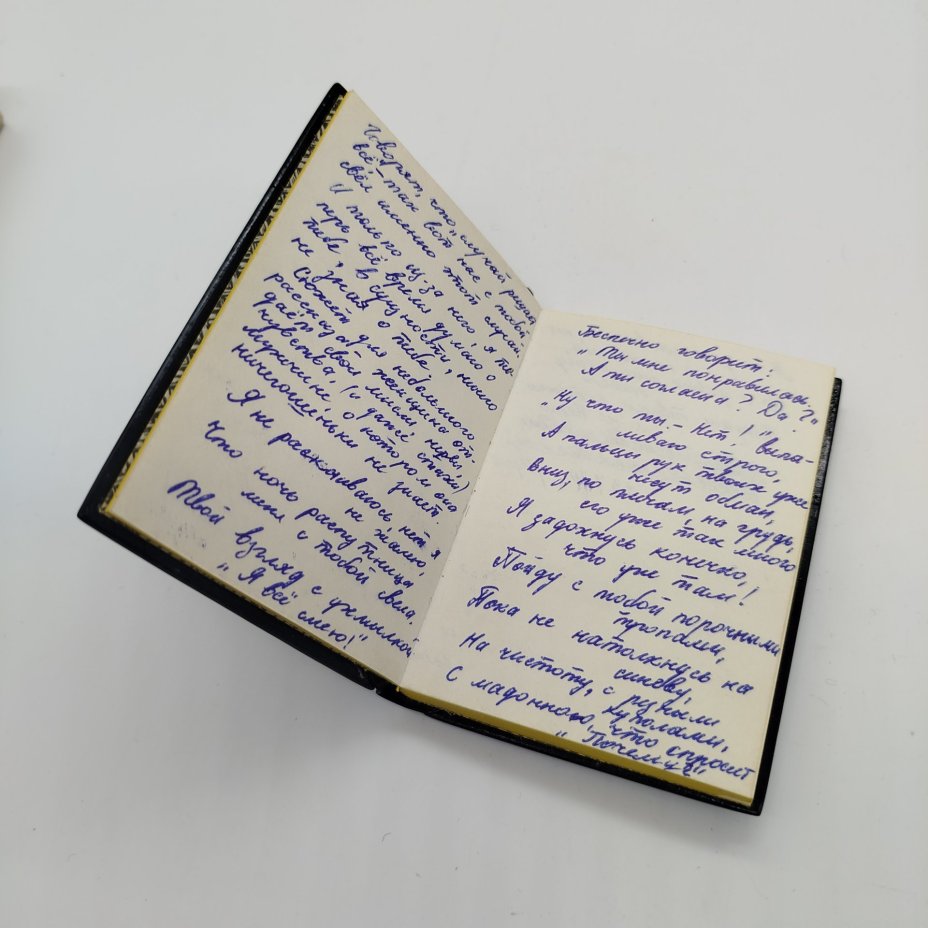 Говорят, что "случай решает
всё - так вот нас с тобой
свёл именно этот случай
И только из-за него я те-
перь всё время думаю о
тебе, в сущности, ничего
не зная о тебе.
Сюжет для небольшого
рассказа: женщина от-
даёт свои мысли, нервы,
чувства, (и даже, стихи)
мужчине, о котором она
ничегошеньки не знает.
Я не раскаиваюсь, нет, я
не жалею,
Что ночь распутница
меня с тобой свела,
Твой взгляд с ухмылкой
"Я всё смею!"
Беспечно говорит:
"Ты мне понравилась,
А ты согласна? Да?"
"Ну что ты - нет!" выго-
ливаю строго,
А пальцы рук твоих уже
несут обман,
Вниз, по плечам, на грудь,
его уже так много
Я задохнусь конечно,
что уже там!
Пойду с тобой порочными
тропами,
Пока не натолкнусь на
синеву,
На чистоту, с резными
куполами,
С мадонною, что спросит
"Почему?"